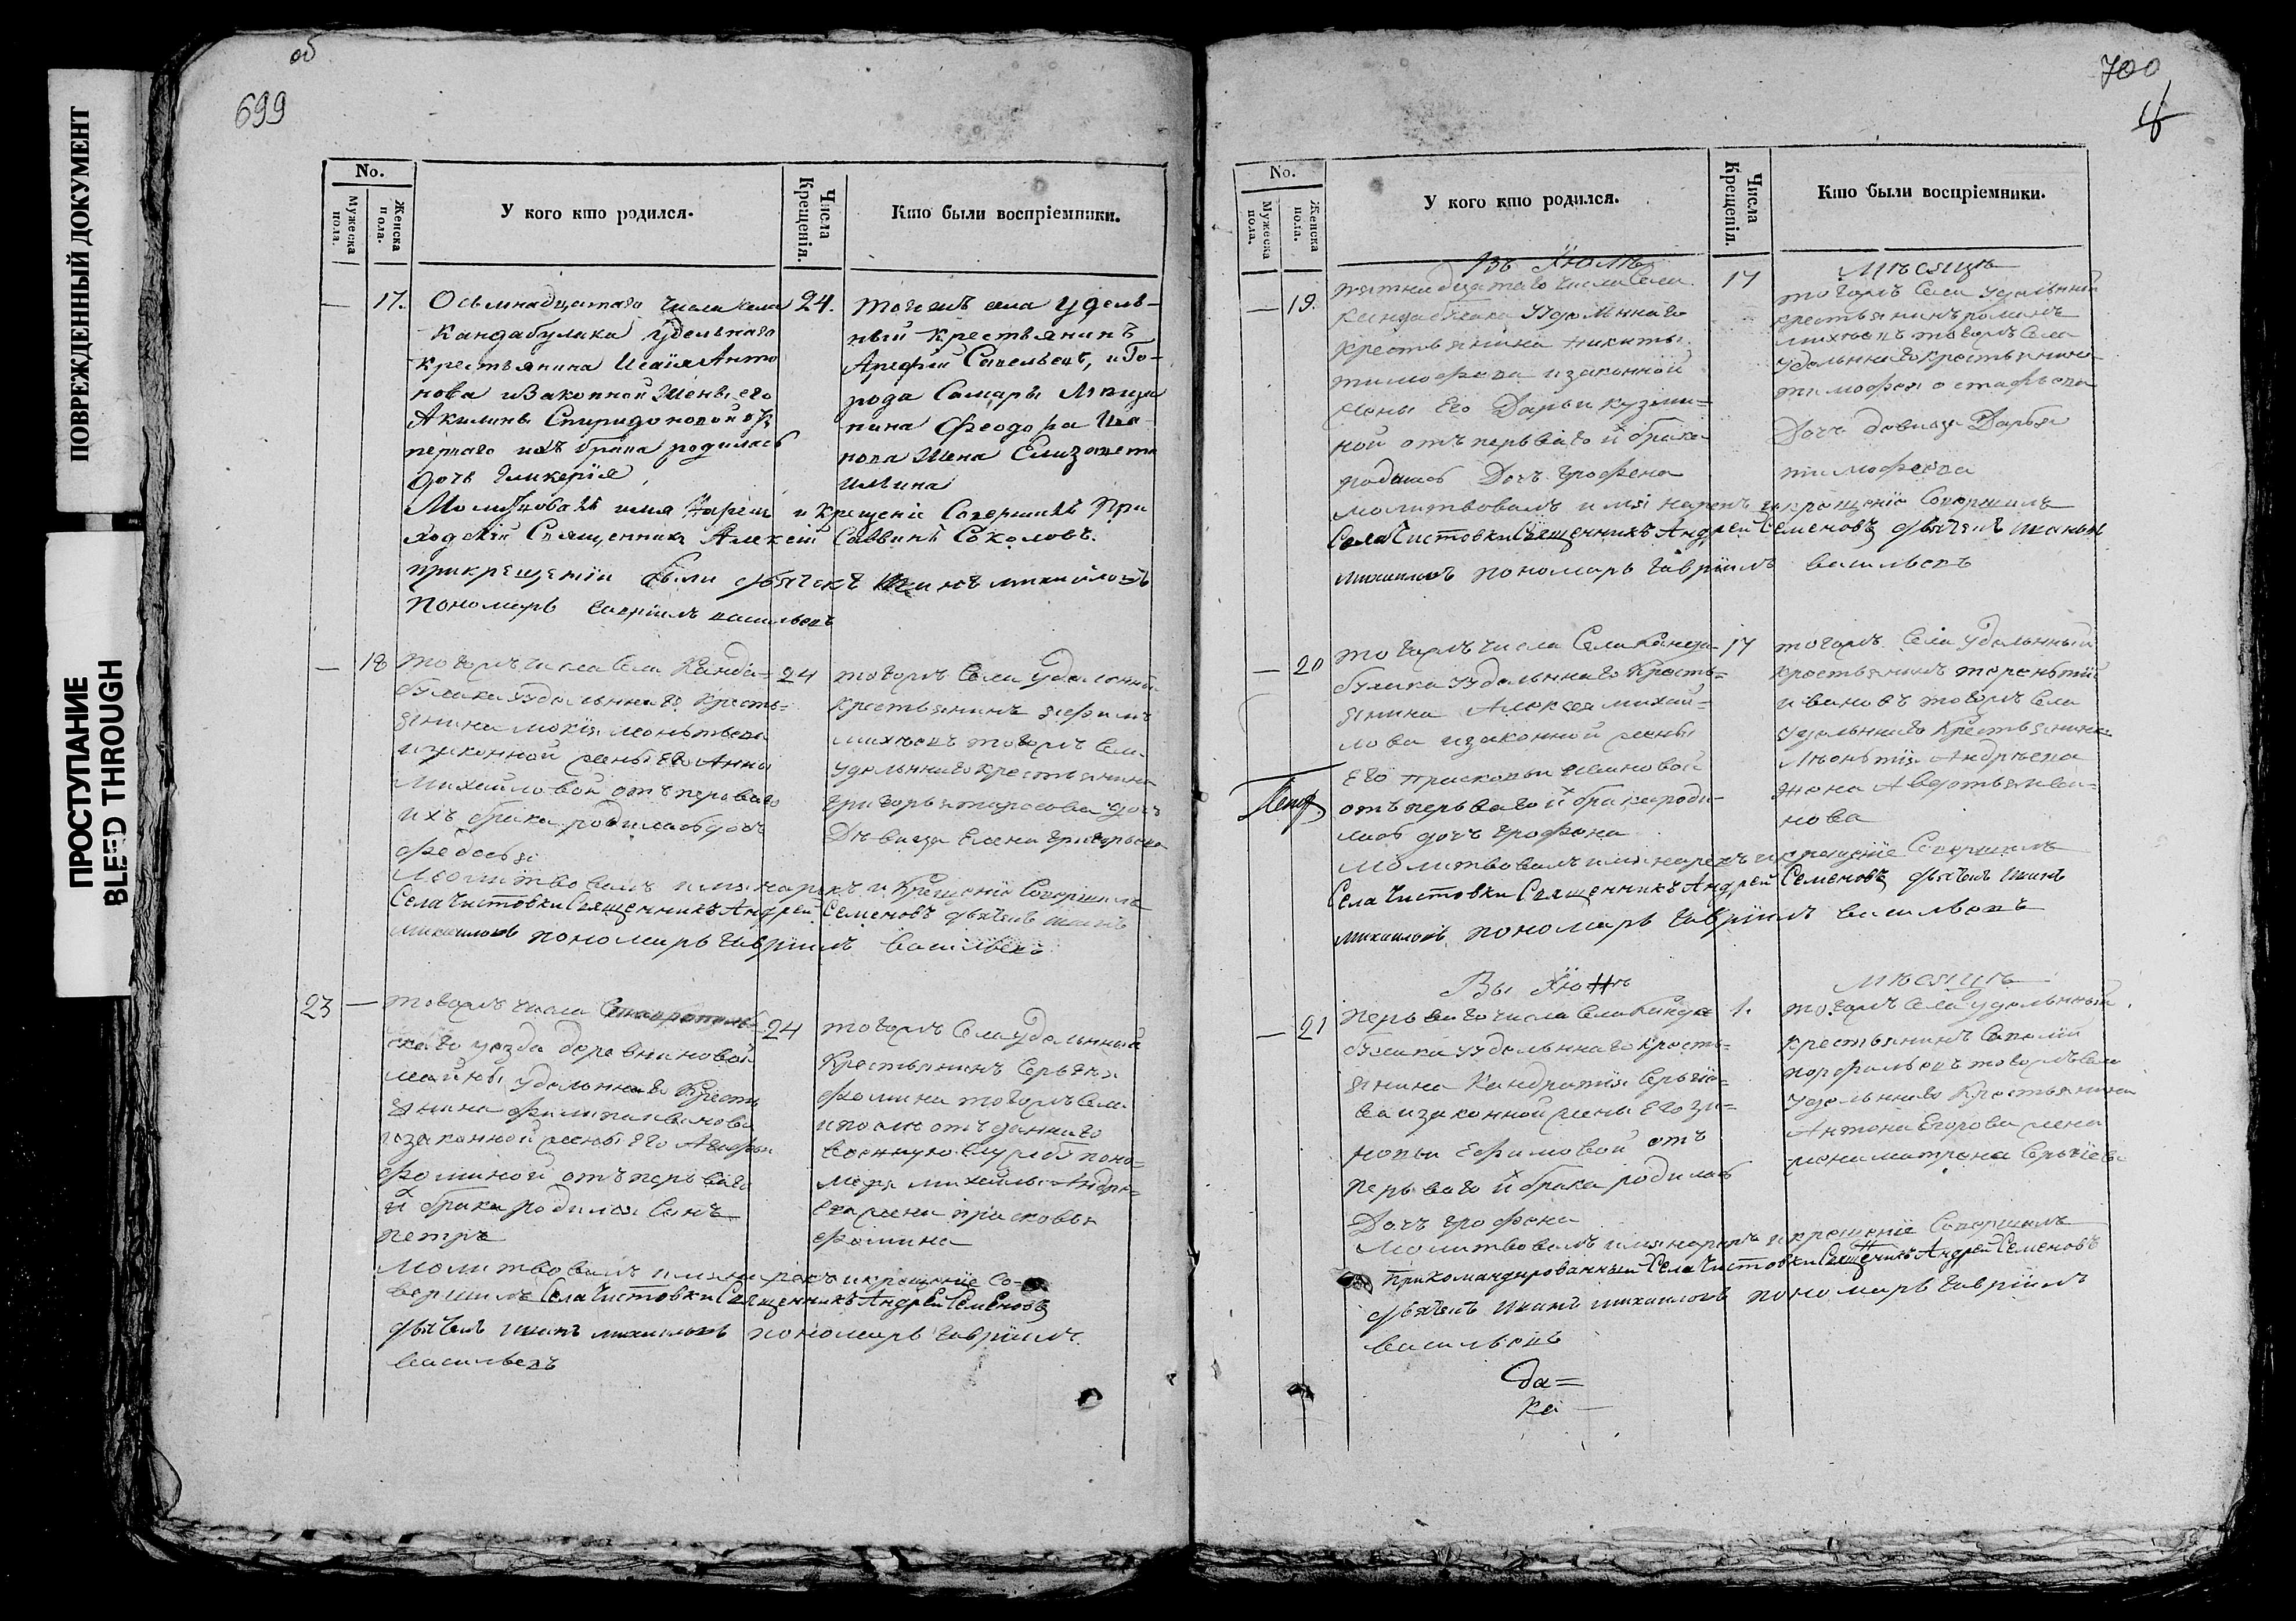 ПОВРЕЖДЕННЫЙ ДОКУМЕНТ
ПРОСТУПАНИЕ
BLEED THROUGH
об
699
No.
Мужеска пола.
Женска пола.
У кого кто родился.
Числа Крещенія.
Кто были воспріемники.
17.
Осьмнадцатаго числа села
Кандабулака Удельнаго
крестьянина Исаія Анто
нова иЗаконной Жены его
Акилины Спиридоновой
перваго ихъ брака родилась
дочь Гликерія
24.
тогожъ села Удель-
ный крестьянинъ
Арефій Савельевъ, и Го-
рода Самары
Феодора Ива
нова Жена Елизавета
Ильина
Молитвовалъ имя нарекъ и Крещеніе Совершилъ При
ходскій Священникъ Алексій Саввинъ Соколовъ.
прикрещеніи были дьячекъ Иванъ михайловъ
пономарь гавріилъ васильевъ
18
тогожъ числа села Канда=
булака Удельннаго кресть=
янина мокія леонтьева
изаконной жены Его Анны
Михайловой отъ перваго
ихъ брака родиласъ дочь
Федосья
24
тогожъ Села Удельнный
крестьянинъ ефимъ
михеевъ тогожъ Села
удельннаго крестьянина
григорья тарасова дочь
Девица Елена григорьева
Молитвовалъ имя нарекъ и Крещеніе Совершилъ
Села Чистовки Священникъ Андрей Семеновъ дьячекъ иванъ
михаиловъ пономарь гавріилъ васильевъ
23
тогожъ числа Ставрополь
скаго уезда деревни новой
майны удельннаго Кресть
янина филипа иванова
изаконной жены Его Агафьи
Фоминой отъ перваго
их брака родился Сынъ
петръ
24
тогожъ Села Удельнный
Крестьянинъ
Фомина тогожъ Села
отъданнаго
военную Службу поно=
маря михаилы Андре=
ева жена прасковья
Фомина
Молитвовалъ имя нарекъ икрещеніе со=
вершилъ Села Чистовки Священникъ Андрей Семеновъ
дьячекъ иванъ михаиловъ пономарь гавріилъ
васильевъ
700
No.
Мужеска пола.
Женска пола.
У кого кто родился.
Числа Крещенія.
Кто были воспріемники.
Въ Іюлъ
месяцъ
19.
пятнадцатаго числа Села
кандабулака Удельннаго
крестьянина никиты
тимофеева изаконной
жены Его Дарьи кузми=
ной отъ перваго их брака
родилась Дочь грофена
17
тогожъ Села удельнный
крестьянинъ романъ
михеевъ тогожъ Села
удельннаго крестьянина
тимофея остафьева
Дочь девица Дарья
тимофеева
молитвовалъ имя нарекъ икрещеніе Совершилъ
Села Чистовки Священникъ Андрей Семеновъ дьячекъ иванъ
михаиловъ пономарь гавріилъ васильевъ
20
тогожъ числа Села Канда
булака удельннаго Кресть=
янина Алексея михай=
лова изаконной жены
Его прасковьи ивановой
отъ перваго их брака роди=
лась дочь грофена
17
тогожъ Села Удельнный
крестьянинъ терентій
ивановъ тогожъ Села
удельннаго Крестьянина
леонтія Андреева
жена Авдотья ива=
нова
молитвовалъ имя нарекъ и крещеніе Совершилъ
Села Чистовки Священникъ Андрей Семеновъ дьячекъ иванъ
михаиловъ пономарь гавріилъ васильевъ
Вы Іюнъ
месяцъ
21
перваго числа Села Канда
булака удельннаго кресть=
янина Кандратія Сергіе=
ва изаконной жены Его зи=
новьи Ефимовой отъ
перваго их брака родилась
Дочь грофена
1.
тогожъ Села удельнный
крестьянинъ Савелій
порфирьевъ тогожъ Села
удельннаго Крестьянина
Антона Егорова жена
матрена Сергіева
молитвовалъ имя нарекъ икрещеніе Совершилъ
прикомандированный Села Чистовки Священникъ Андрей Семеновъ
дьячекъ иванъ михаиловъ пономарь гавріилъ
васильевъ
да=
ка